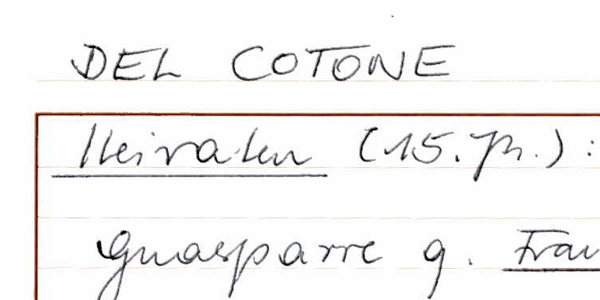 DEL COTONE
Heiraten (15. Jh.):
Guasparre q. Fran